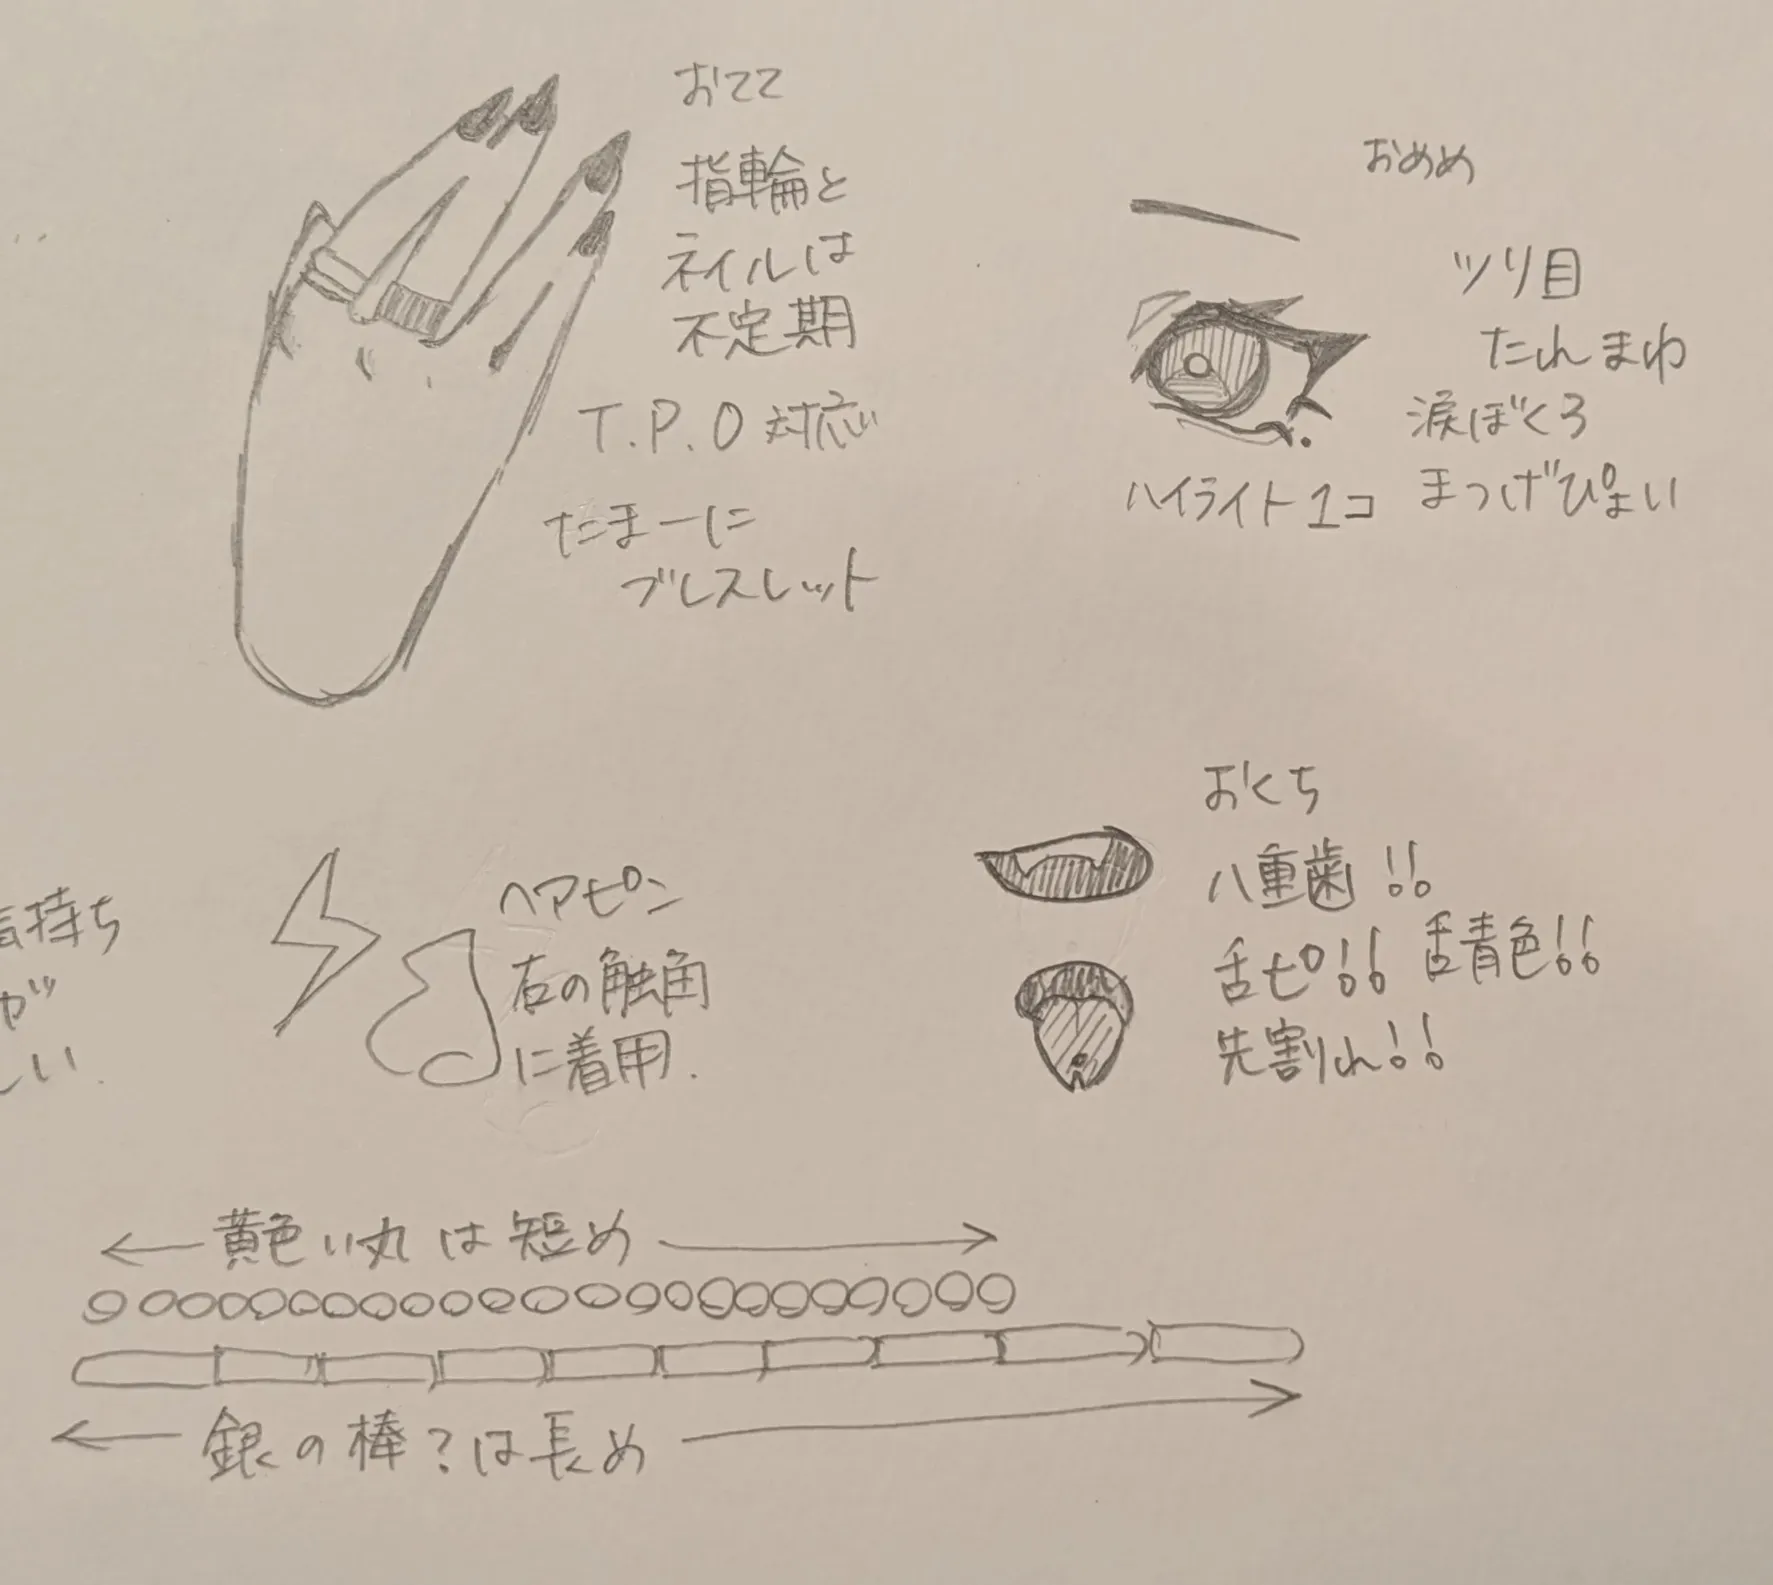 おてて
指輪と
ネイルは
不定期
T.P.O 対応
たまーに
ブレスレット
おめめ
ツリ目
たれまゆ
涙ぼくろ
まつげぴょい
ハイライト1コ
持ち
が
しい.
ヘアピン
右の触角
に着用.
おくち
八重歯!!
舌ピ!! 舌青色!!
先割れ!!
← 黄色い丸は短め →
← 銀の棒?は長め →